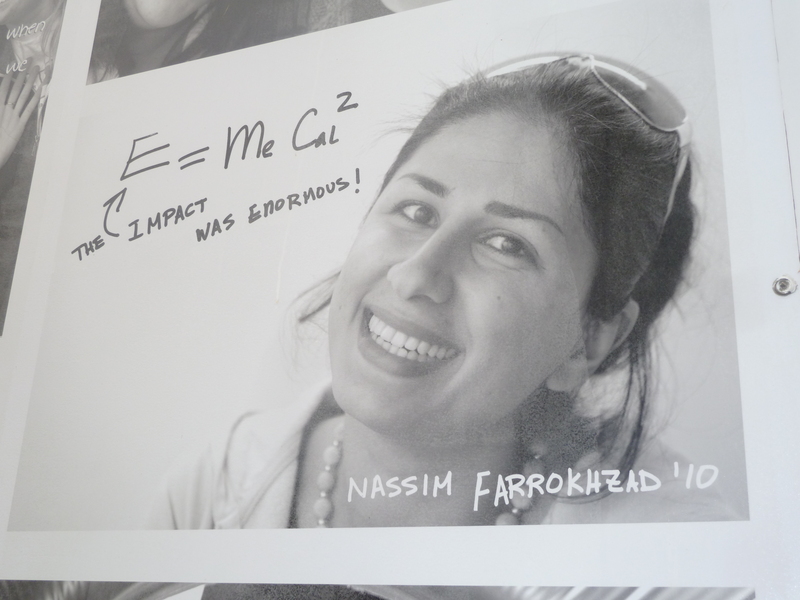 when
we
E = Me Cal²
THE IMPACT
WAS ENORMOUS!
NASSIM FARROKHZAD '10